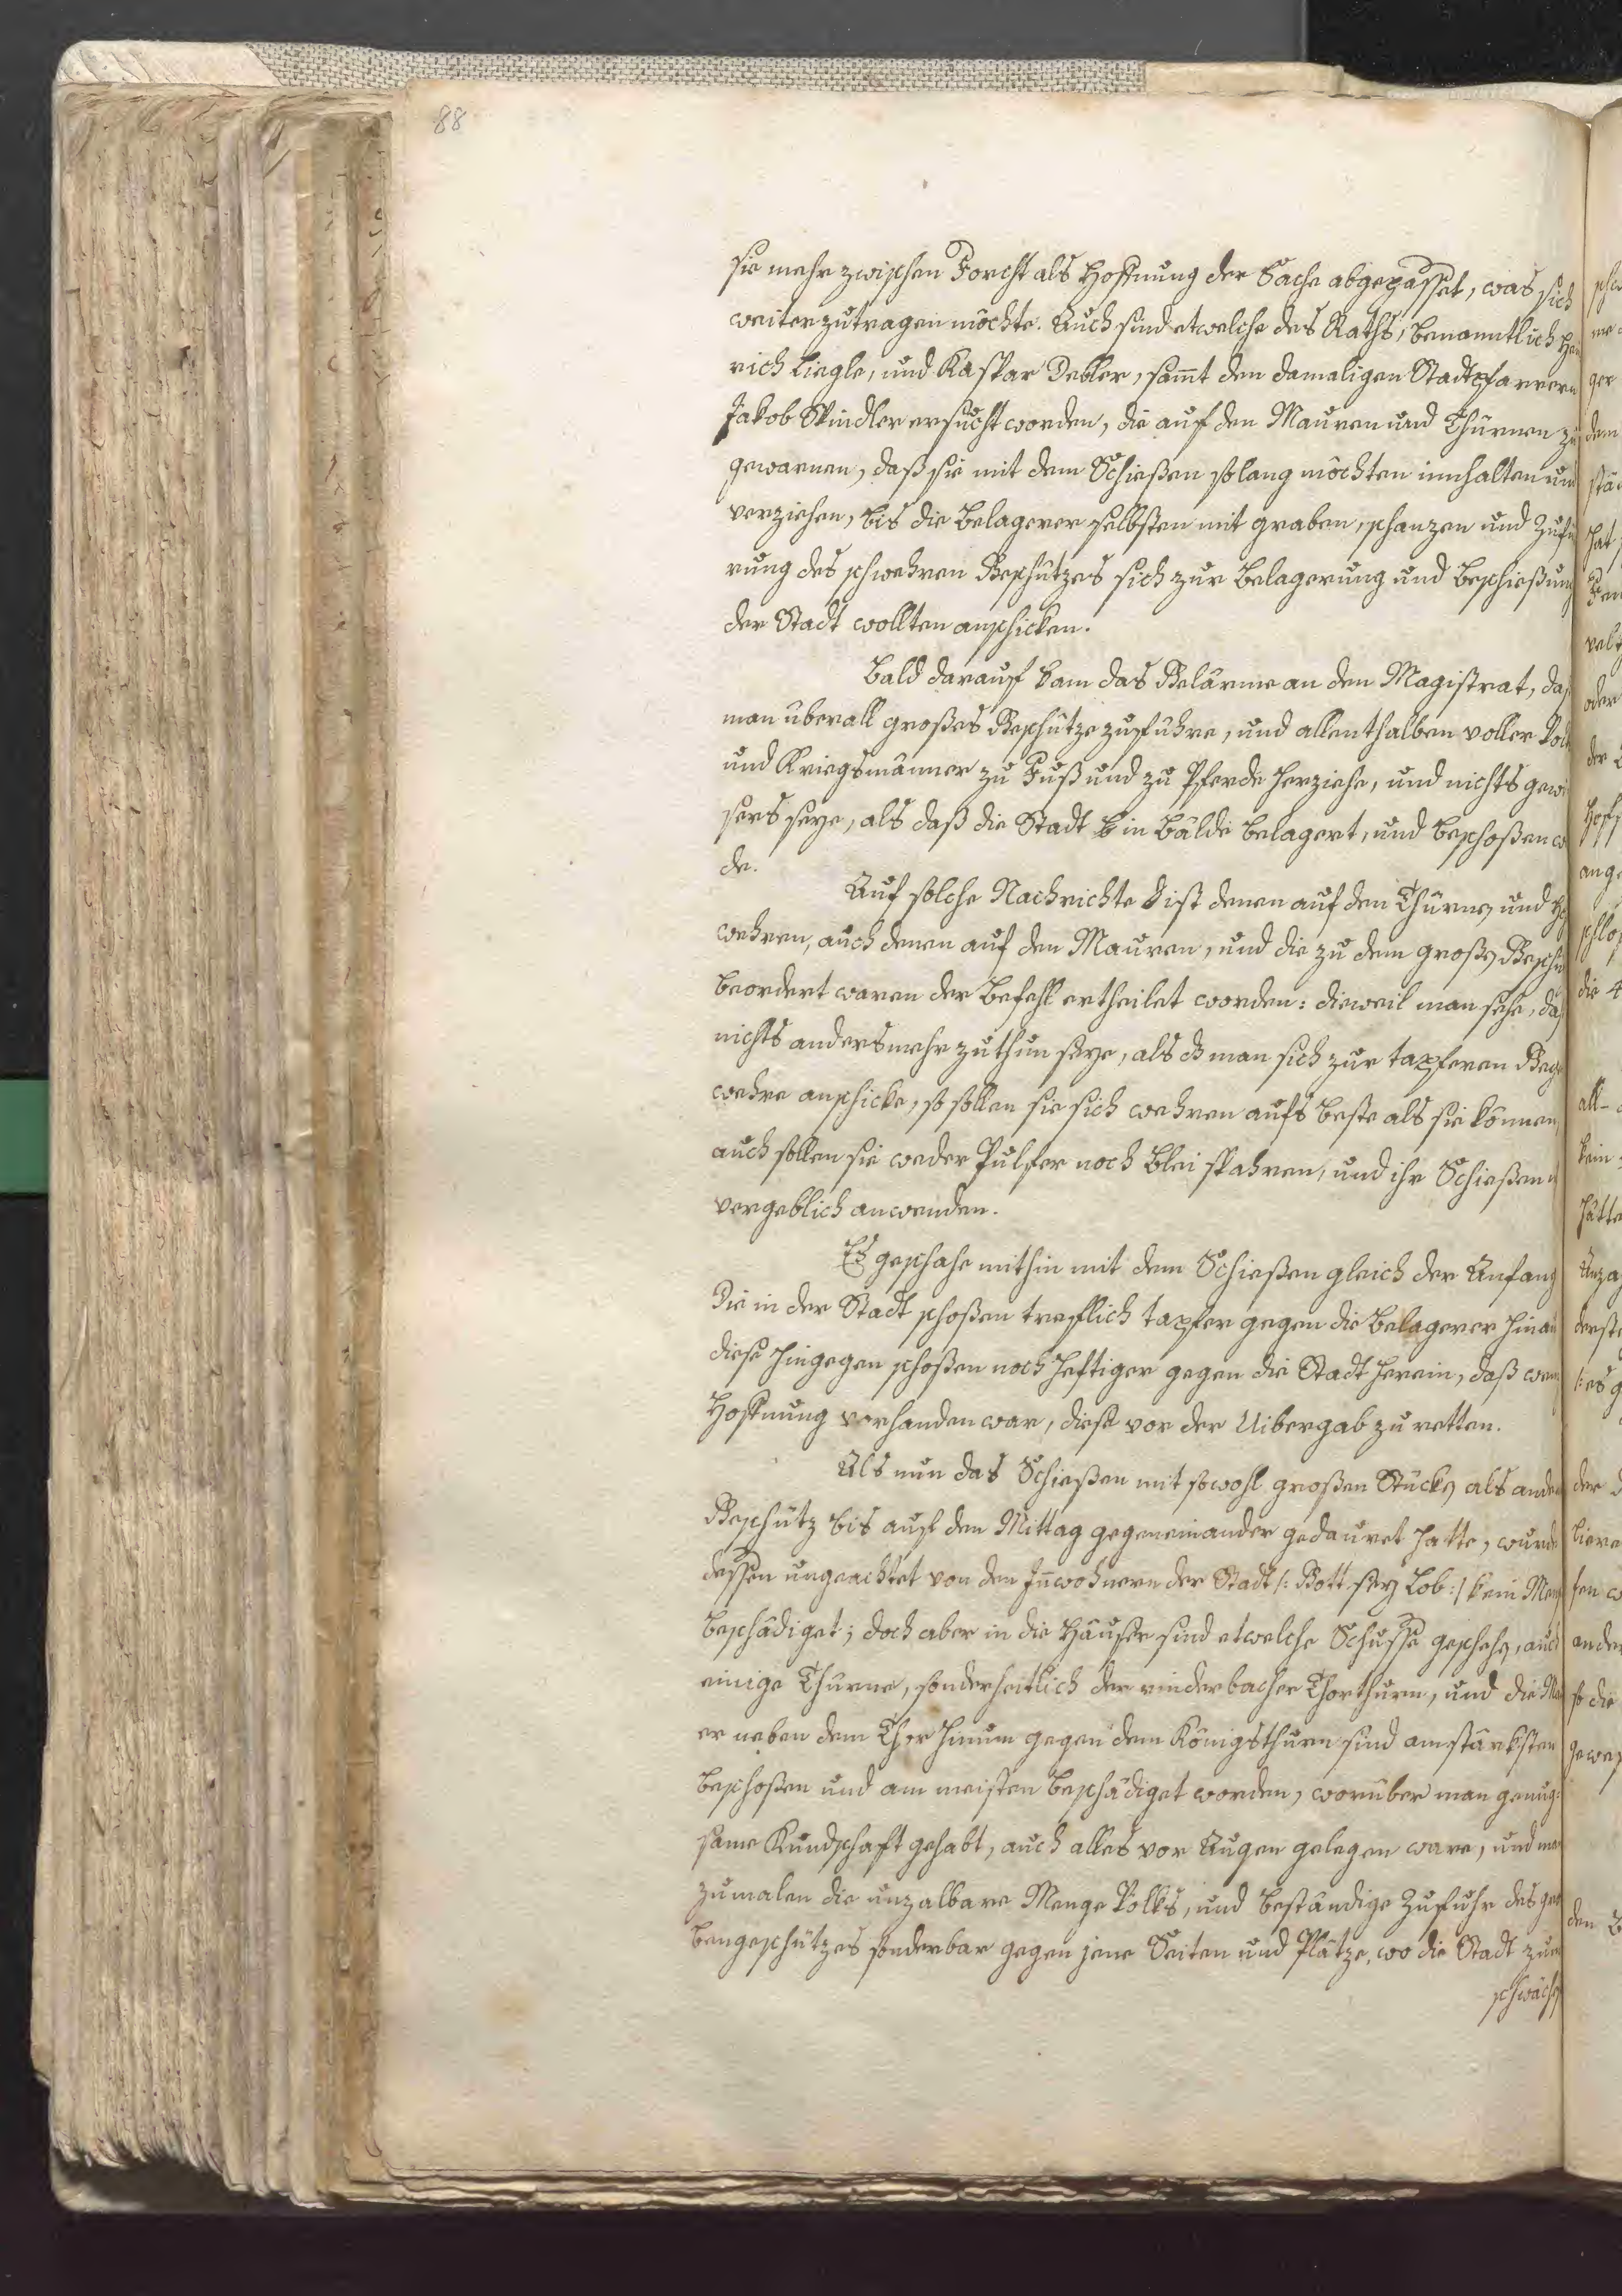 88
sie mehr zwischen Forcht als Hoffnung der Sache abgepasset, was sich
weiter zutragen möchte. Auch sind etwelche des Raths, benanntlich Hen
rich Liegle, und Kaspar Debler, sam̄t den damaligen Stadtpfarrern
Jakob Spindler ersucht worden, die auf den Mauren und Thürnen zu
gewarnen, daß sie mit dem Schießen solang möchten innhalten und
verziehen, bis die Belagerer selbsten mit graben, schanzen und Zufü
rung des schwehren Geschützes sich zur Belagerung und Beschießung
der Stadt wollten anschicken.
Bald darauf kam das Gelärme an den Magistrat, daß
man überall großes Geschütze zuführe, und allenthalben voller Volk
und Kriegsmänner zu Fuß und zu Pferde herziehe, und nichts gewi
sers seye, als daß die Stadt in Bälde belagert, und beschoßen w
de.
Auf solche Nachrichte ist denen auf den Thürnen und
wehren, auch denen auf den Mauren, und die zu dem großen Geschü
beordert waren der Befehl ertheilet worden: dieweil man sehe, daß
nichts anders mehr zuthun seye, als dz man sich zur tapferen Geg
wehre anschicke, so sollen sie sich wehren aufs beste als sie können,
auch sollen sie weder Pulfer noch Blei spahren, und ihr Schießen
vergeblich anwenden.
Es geschahe mithin mit dem Schießen gleich der Anfang
Die in der Stadt schoßen trefflich tapfer gegen die Belagerer hinau
diese hingegen schoßen noch heftiger gegen die Stadt herein, daß wenig
Hoffnung vorhanden war, diese vor der Uibergab zu retten.
Als nun das Schießen mit sowohl großen Stücken als ander
Geschütz bis auf den Mittag gegeneinander gedauret hatte, wurde
dessen ungeachtet von den In̄wohnern der Stadt /: Gott sey Lob :/ kein Men
beschädiget; doch aber in die Häuser sind etwelche Schusse geschehen, auch
einige Thürne, sonderheitlich der rinderbacher Thorthurn, und die Mau
er neben dem Thor hinum gegen dem Königsthurn sind am stärksten
beschoßen und am meisten beschädiget worden, worüber man genug:
same Kundschaft gehabt, auch alles vor Augen gelegen ware, und ma
zumalen die unzalbare Menge Volks, und beständige Zufuhr des gro
bengeschützes sonderbar gegen jene Seiten und Plätze, wo die Stadt zum
schwächen